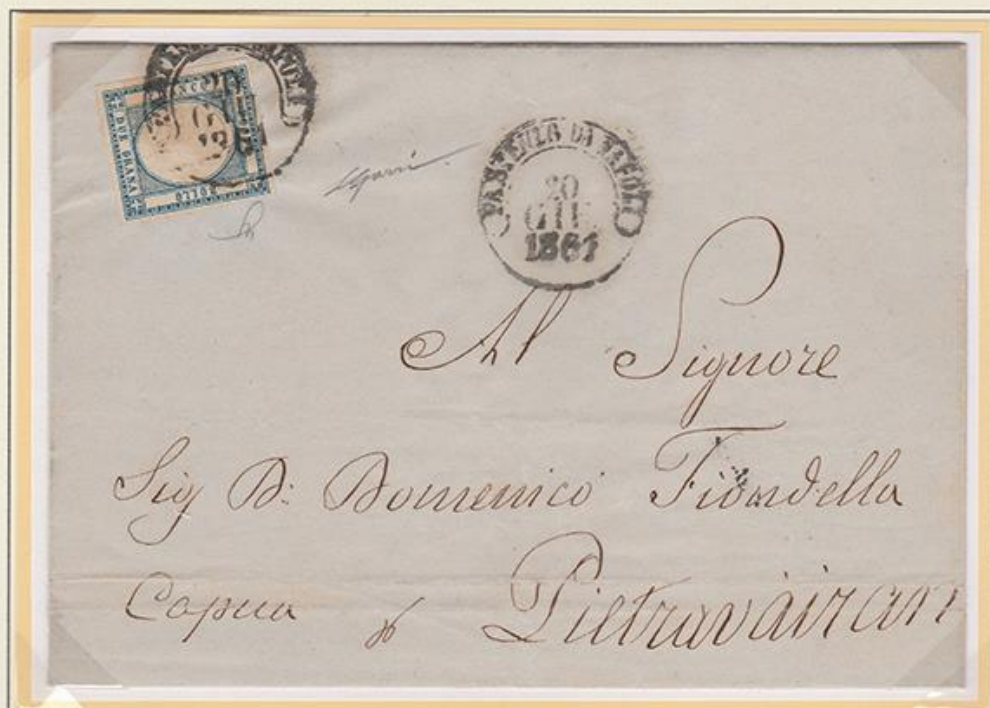 FRANCO
DUE GRANA
BOLLO
PARTENZA DA NAPOLI
20
GIU
1861
Al Signore
Sig D: Domenico Fiondella
Capua p Pietravairan